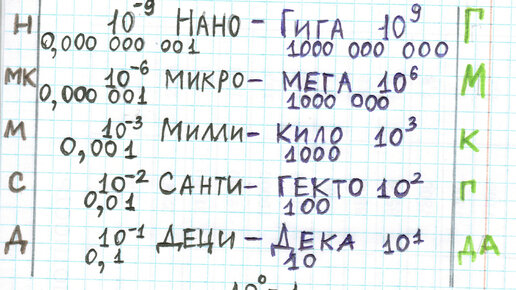 Н 10⁻⁹ НАНО – ГИГА 10⁹ Г
0,000 000 001 1000 000 000
МК 10⁻⁶ МИКРО – МЕГА 10⁶ М
0,000 001 1000 000
М 10⁻³ МИЛЛИ – КИЛО 10³ К
0,001 1000
С 10⁻² САНТИ – ГЕКТО 10² Г
0,01 100
Д 10⁻¹ ДЕЦИ – ДЕКА 10¹ ДА
0,1 10
10⁰ = 1